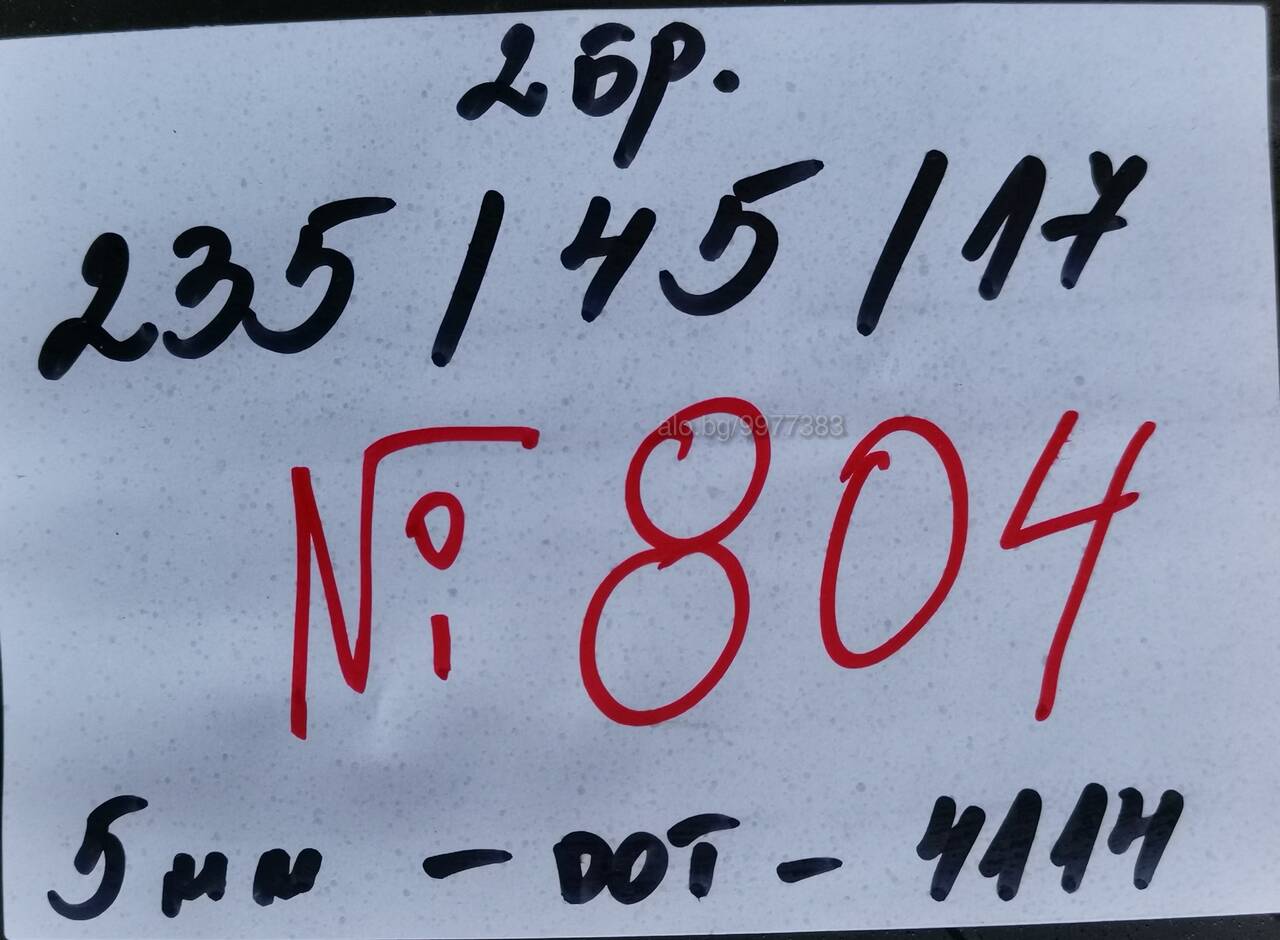 2 бр.
235 / 45 / 17
alo.bg/9977383
№ 804
5 мм - DOT - 4114